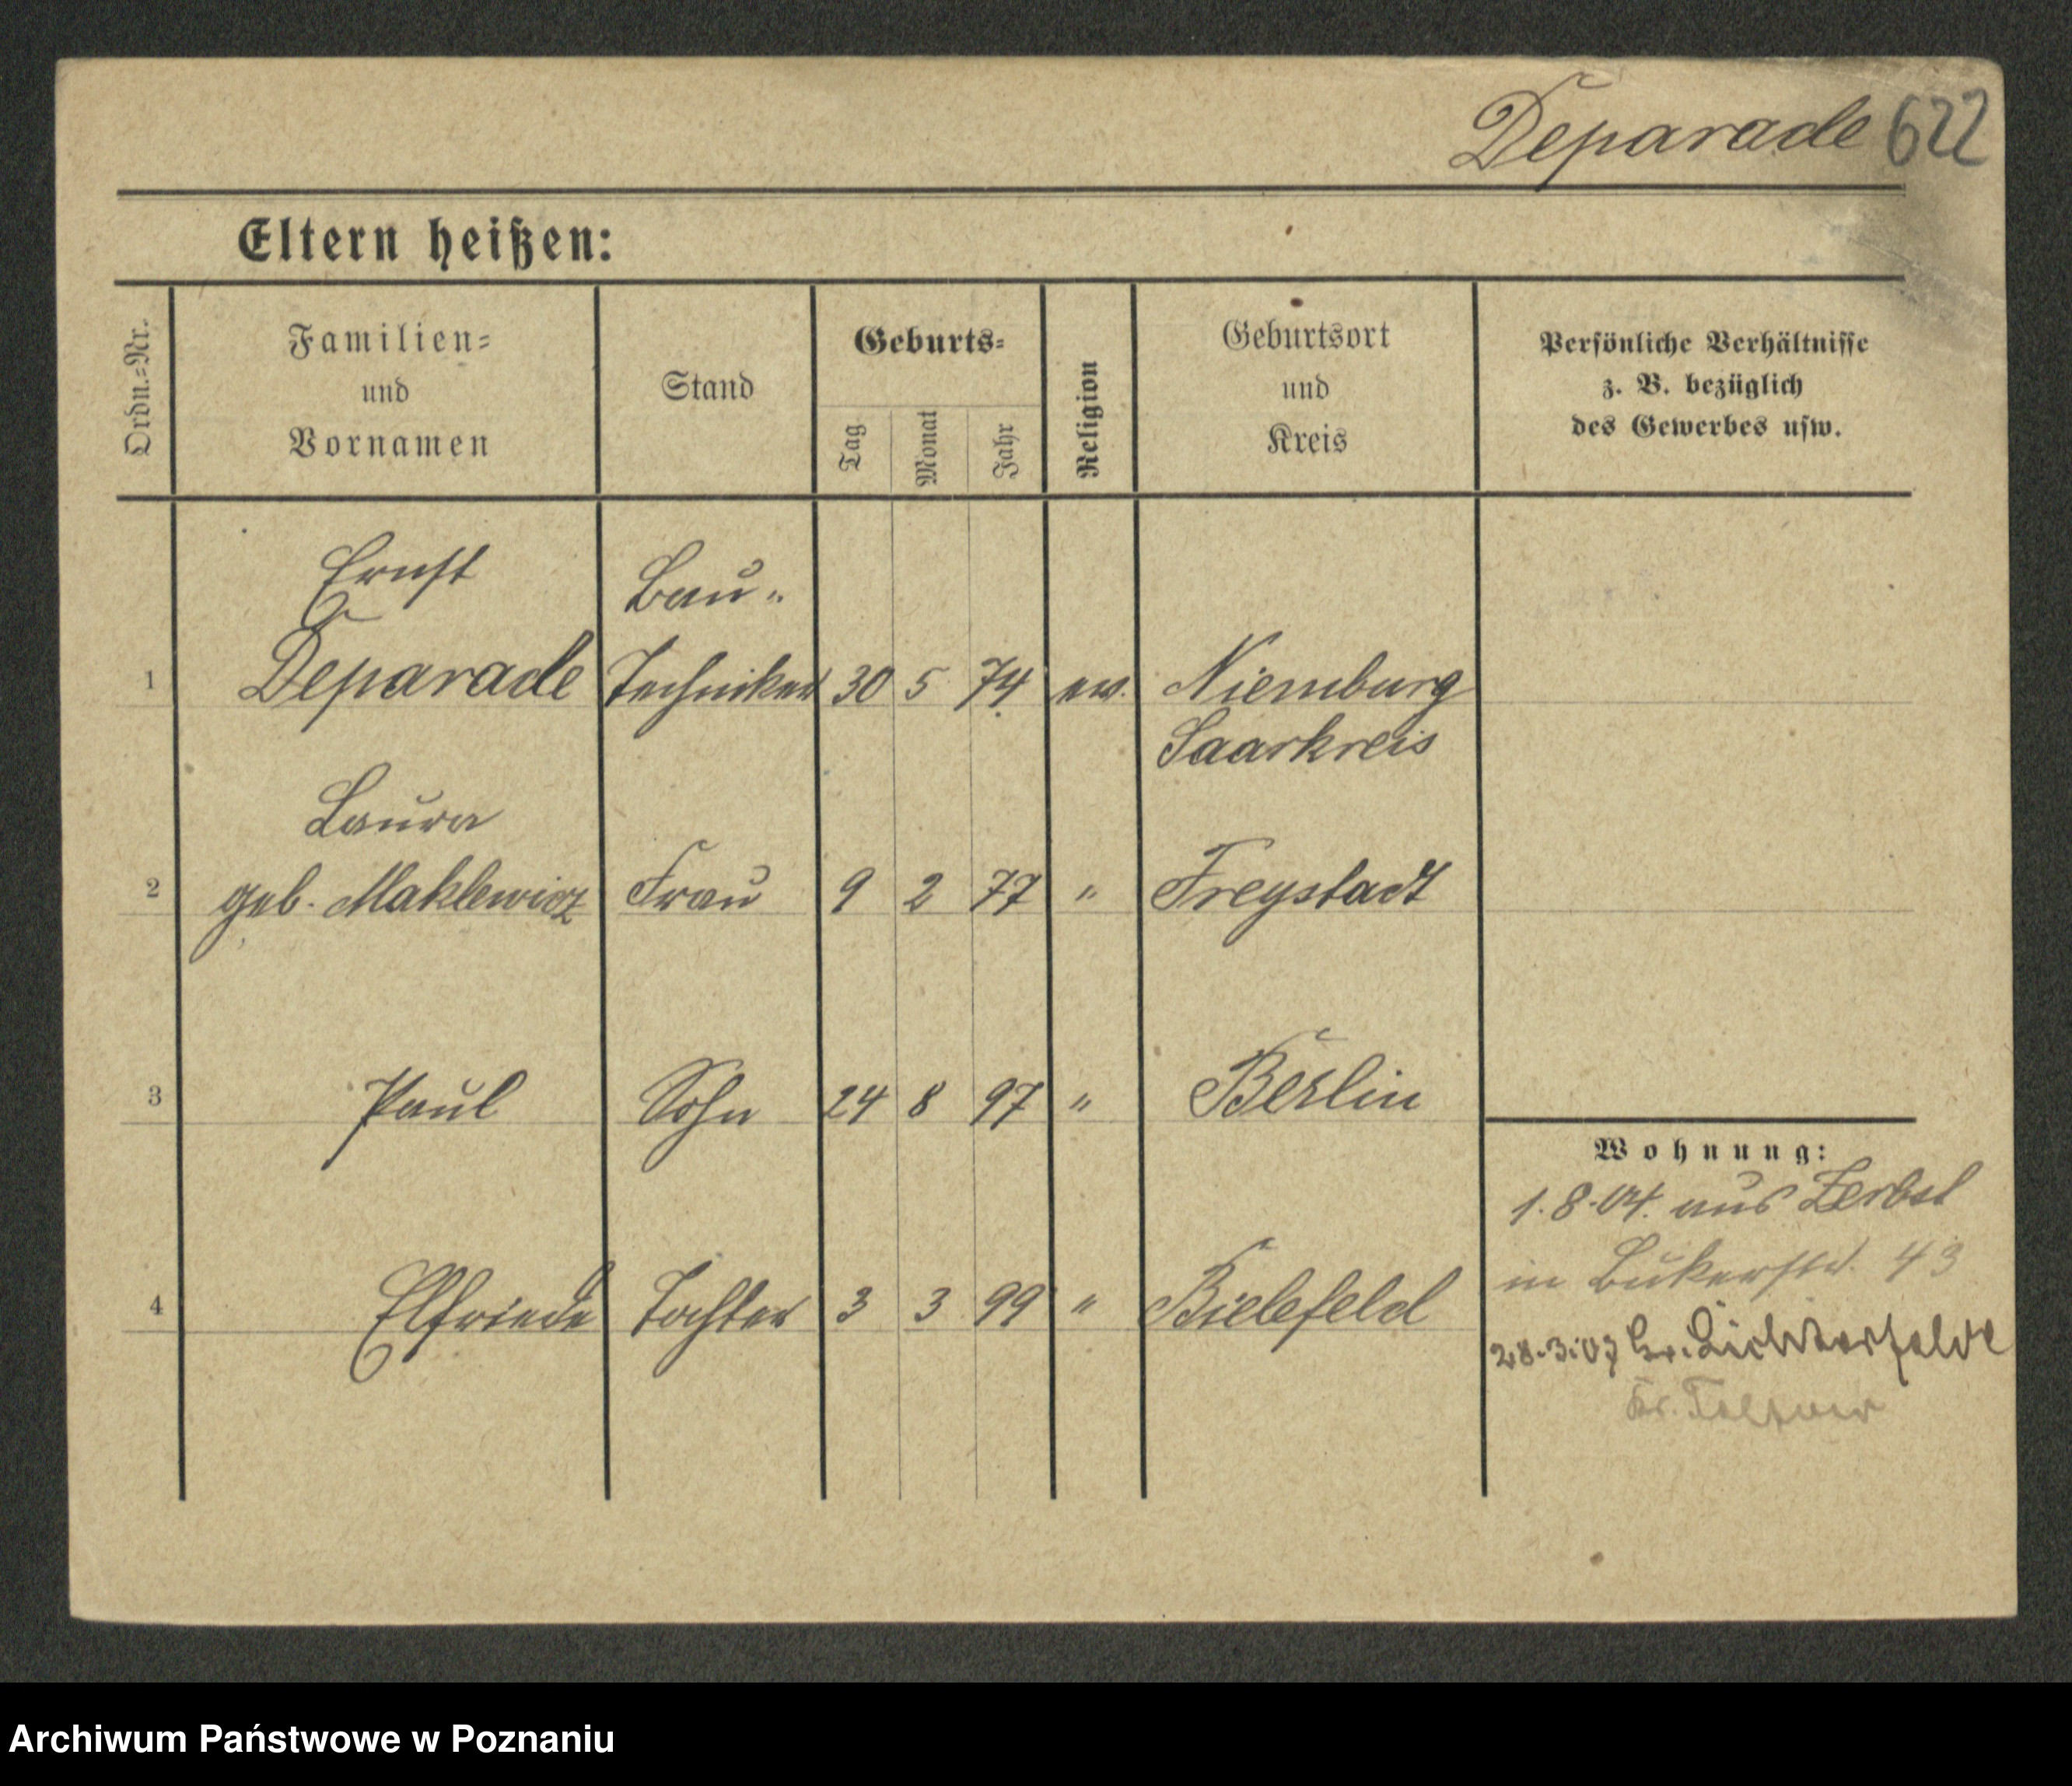 Deparade 622
Eltern heißen:
Ordn.=Nr.
Familien=
und
Vornamen
Stand
Geburts=
Tag
Monat
Jahr
Religion
Geburtsort
und
Kreis
Persönliche Verhältnisse
z. B. bezüglich
des Gewerbes usw.
Ernst Bau-
1 Deparade Techniker 30 5 74 ev. Niemburg
Saarkreis
Laura
2 geb. Maklewicz Frau 9 2 77 " Freystadt
3 Paul Sohn 24 8 97 " Berlin
Wohnung:
1.8.04. aus Zerbst
in Bukerstr. 43
4 Elfriede Tochter 3 3 99 " Bielefeld
28.3.07 Gr. Lichterfelde
Kr. Teltow
Archiwum Państwowe w Poznaniu